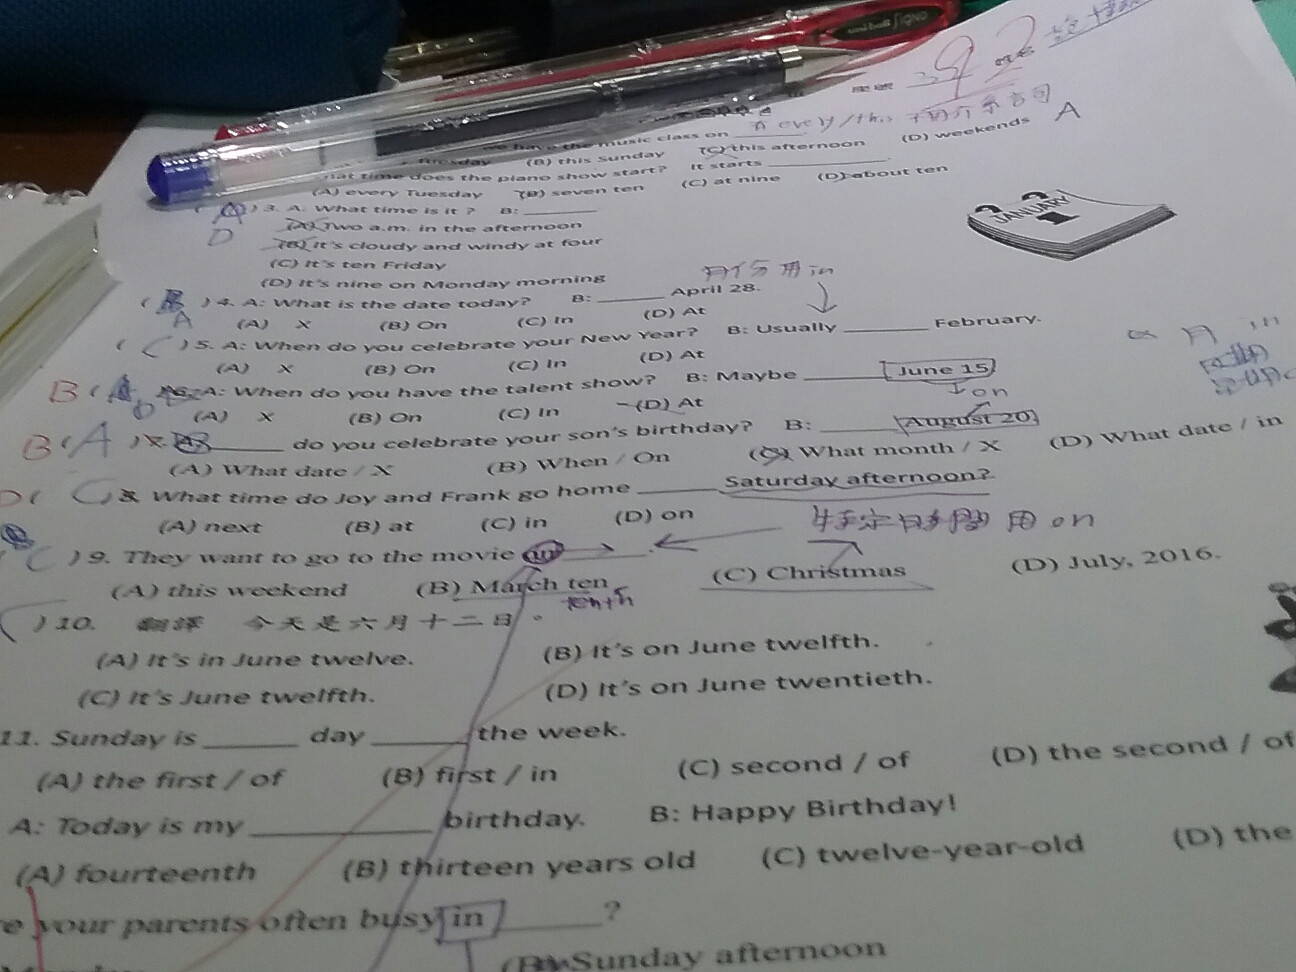 uni-ball Signo
座號 姓名
有 every/this 不用介系詞
music class on ______ A
Tuesday (B) this Sunday (C) this afternoon (D) weekends
time does the piano show start? It starts ______.
(A) every Tuesday (B) seven ten (C) at nine (D) about ten
A ) 3. A: What time is it ? B: ______
D (A) Two a.m. in the afternoon
(B) It's cloudy and windy at four
(C) It's ten Friday
(D) It's nine on Monday morning
月份用in
( B ) 4. A: What is the date today? B: ______ April 28.
A (A) X (B) On (C) In (D) At
( C ) 5. A: When do you celebrate your New Year? B: Usually ______ February.
月 in
(A) X (B) On (C) In (D) At
B ( A: When do you have the talent show? B: Maybe ______ June 15
D on
(A) X (B) On (C) In (D) At
B ( A ) 7. ______ do you celebrate your son's birthday? B: ______ August 20
(A) What date / X (B) When / On (C) What month / X (D) What date / in
D ( C 8. What time do Joy and Frank go home ______ Saturday afternoon?
(A) next (B) at (C) in (D) on
特定日期 用 on
( C ) 9. They want to go to the movie in ______.
(A) this weekend (B) March ten (C) Christmas (D) July, 2016.
tenth
) 10. 翻譯 今天是六月十二日。
(A) It's in June twelve. (B) It's on June twelfth.
(C) It's June twelfth. (D) It's on June twentieth.
11. Sunday is ______ day ______ the week.
(A) the first / of (B) first / in (C) second / of (D) the second / of
A: Today is my ______ birthday. B: Happy Birthday!
(A) fourteenth (B) thirteen years old (C) twelve-year-old (D) the
your parents often busy in ______?
(B) Sunday afternoon
JANUARY
1